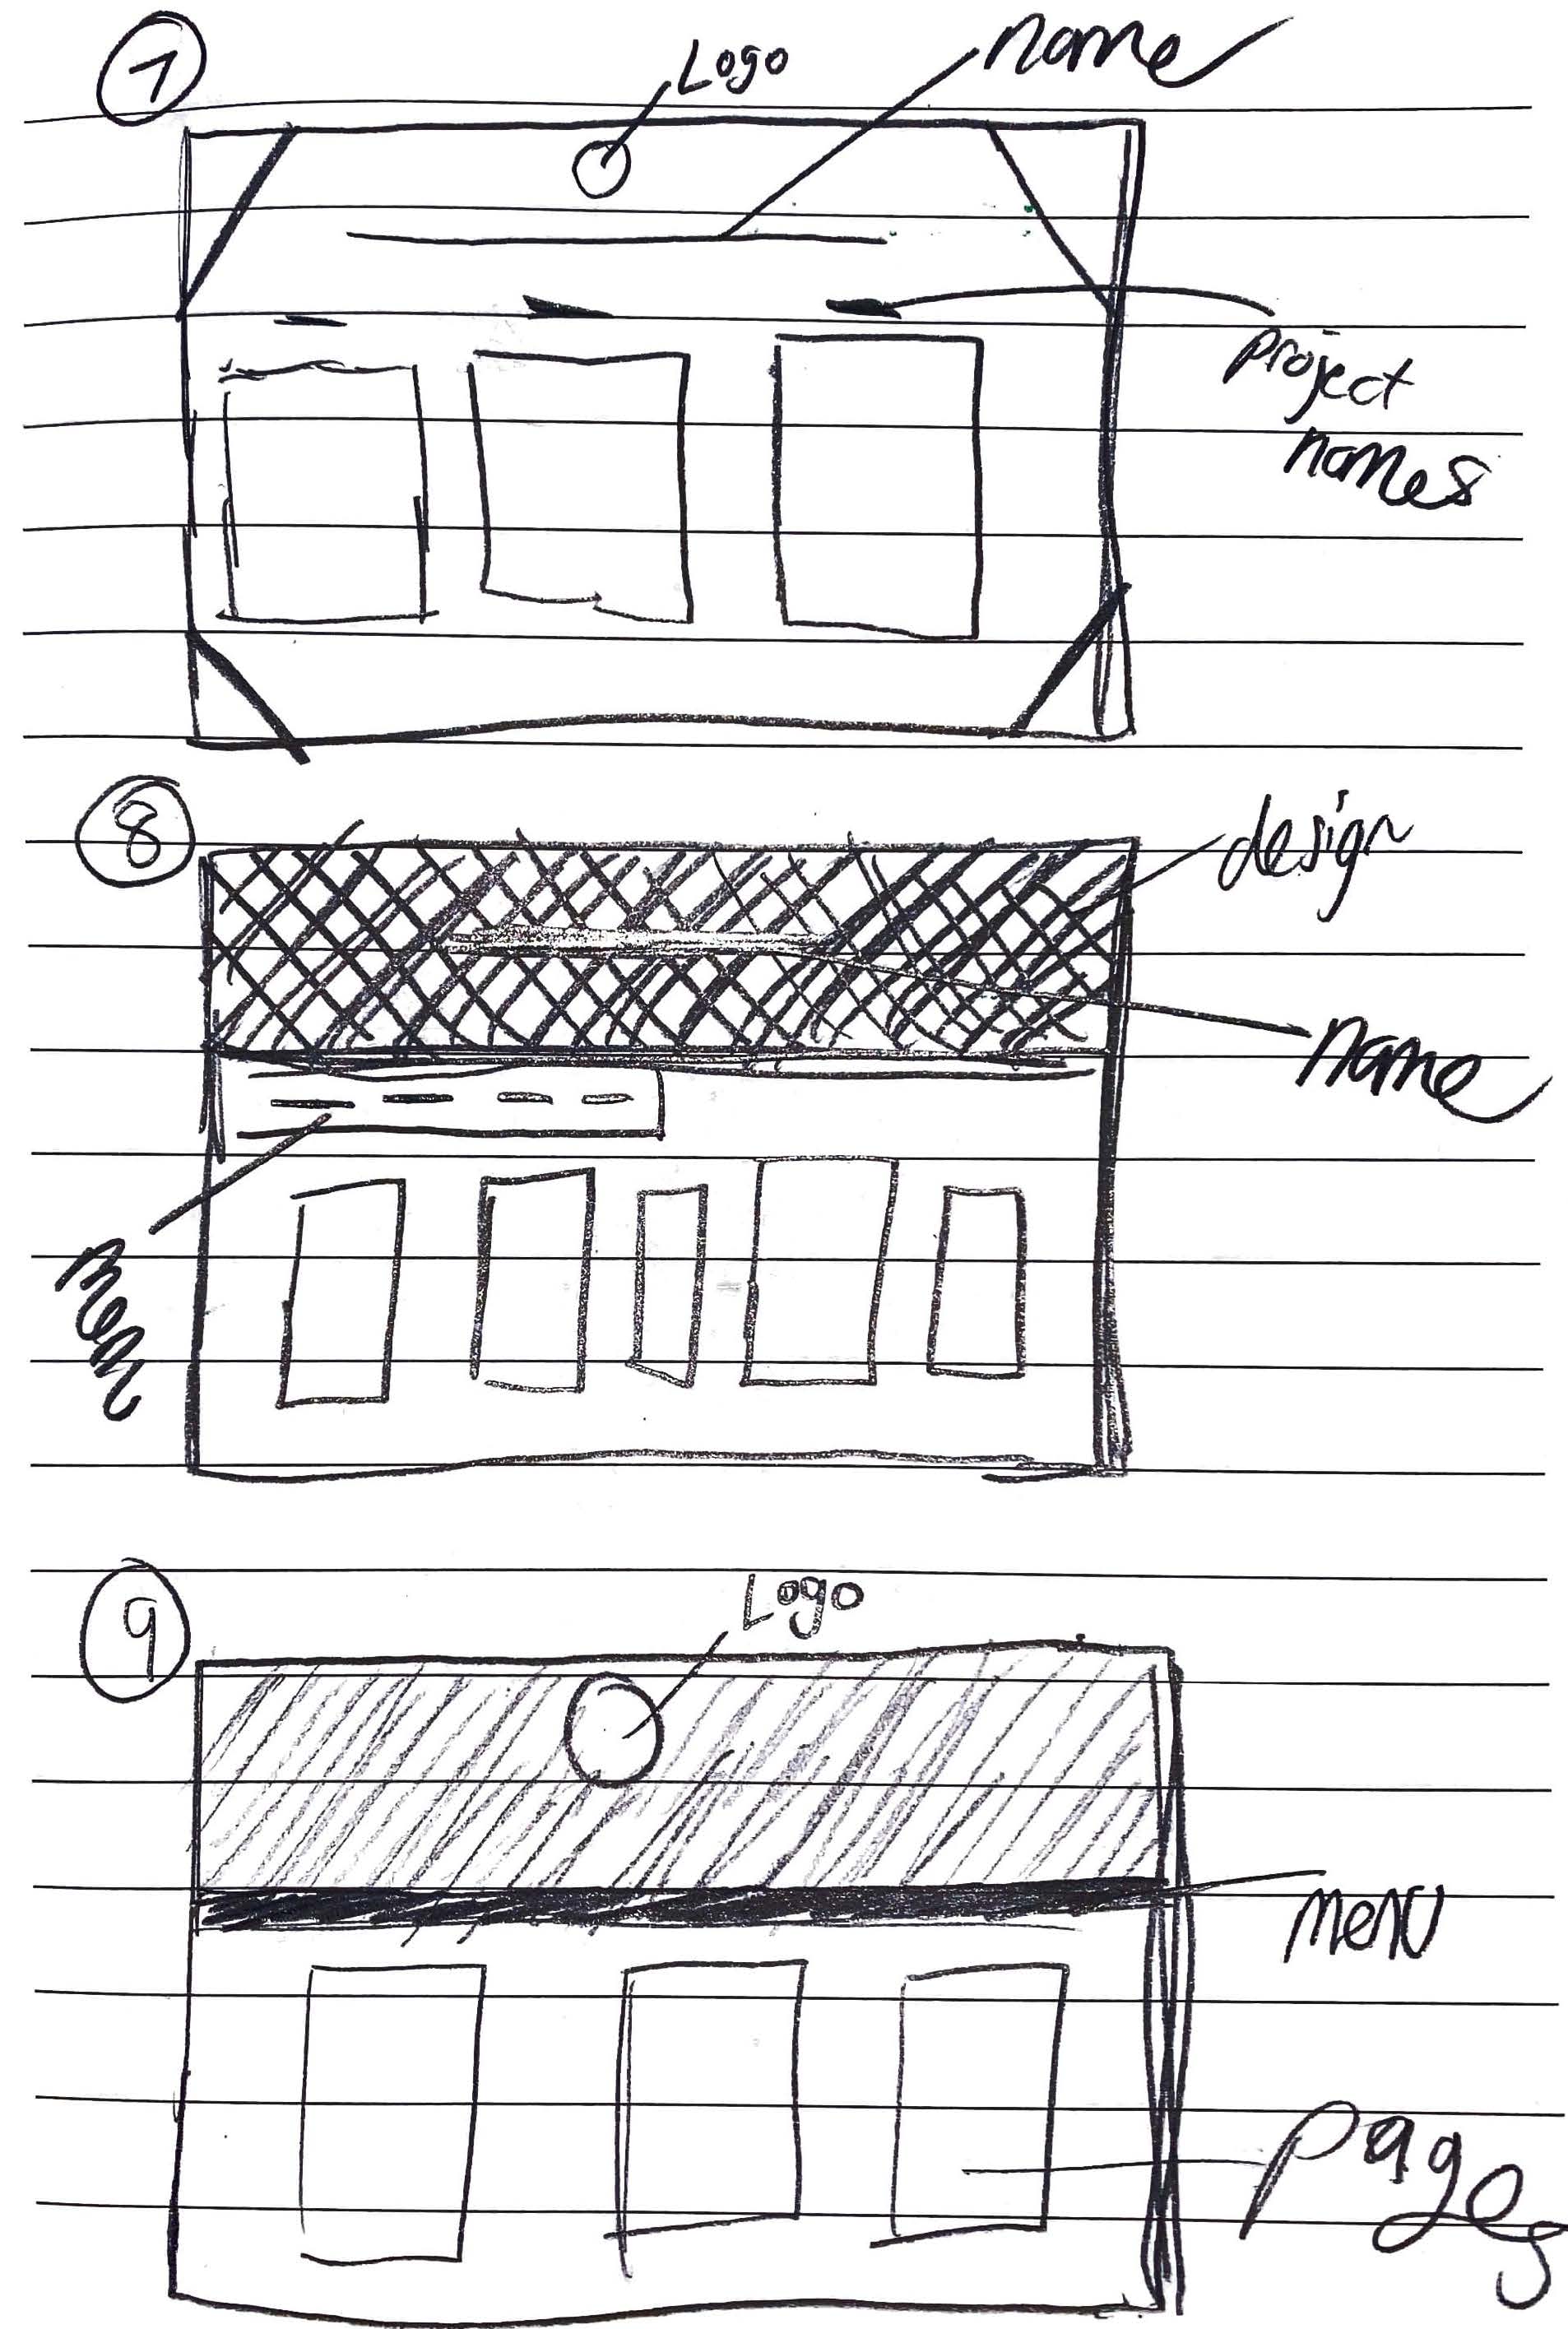 7
Logo
name
project
names
8
design
name
menu
9
Logo
menu
pages